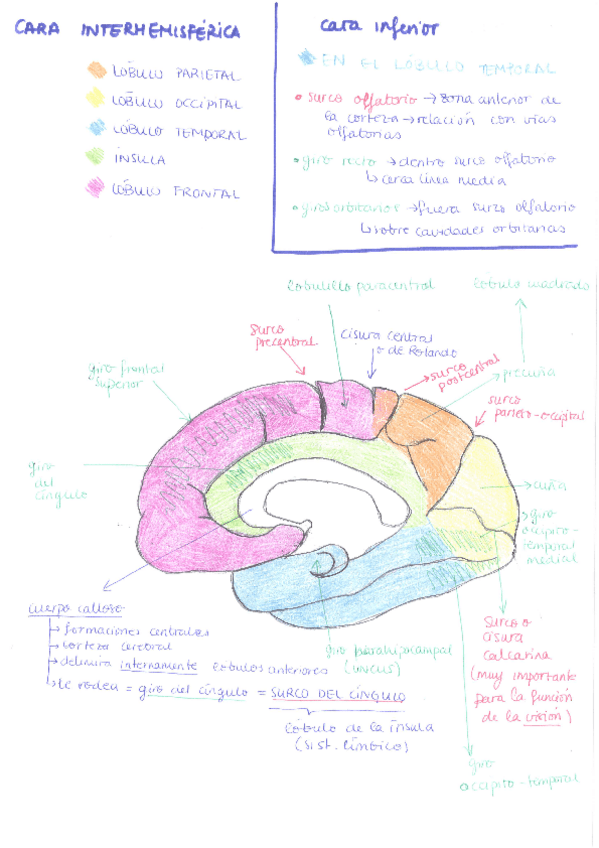 CARA INTERHEMISFÉRICA
LÓBULO PARIETAL
LÓBULO OCCIPITAL
LÓBULO TEMPORAL
ÍNSULA
LÓBULO FRONTAL
cara inferior
EN EL LÓBULO TEMPORAL
surco olfatorio → zona anterior de
la corteza → relación con vías
olfatorias
giro recto → dentro surco olfatorio
↳ cerca línea media
giros orbitarios → fuera surco olfatorio
↳ sobre cavidades orbitarias
lobulillo paracentral
lóbulo cuadrado
surco
precentral
cisura central
o de Rolando
surco
postcentral
precuña
giro frontal
superior
surco
parieto-occipital
giro
del
cíngulo
cuña
giro
occipito-
temporal
medial
cuerpo calloso
→ formaciones centrales
→ corteza cerebral
→ delimita internamente lóbulos anteriores
↳ le rodea = giro del cíngulo = SURCO DEL CÍNGULO
lóbulo de la ínsula
(sist. límbico)
giro parahipocampal
(uncus)
surco o
cisura
calcarina
(muy importante
para la función
de la visión)
giro
occipito-temporal